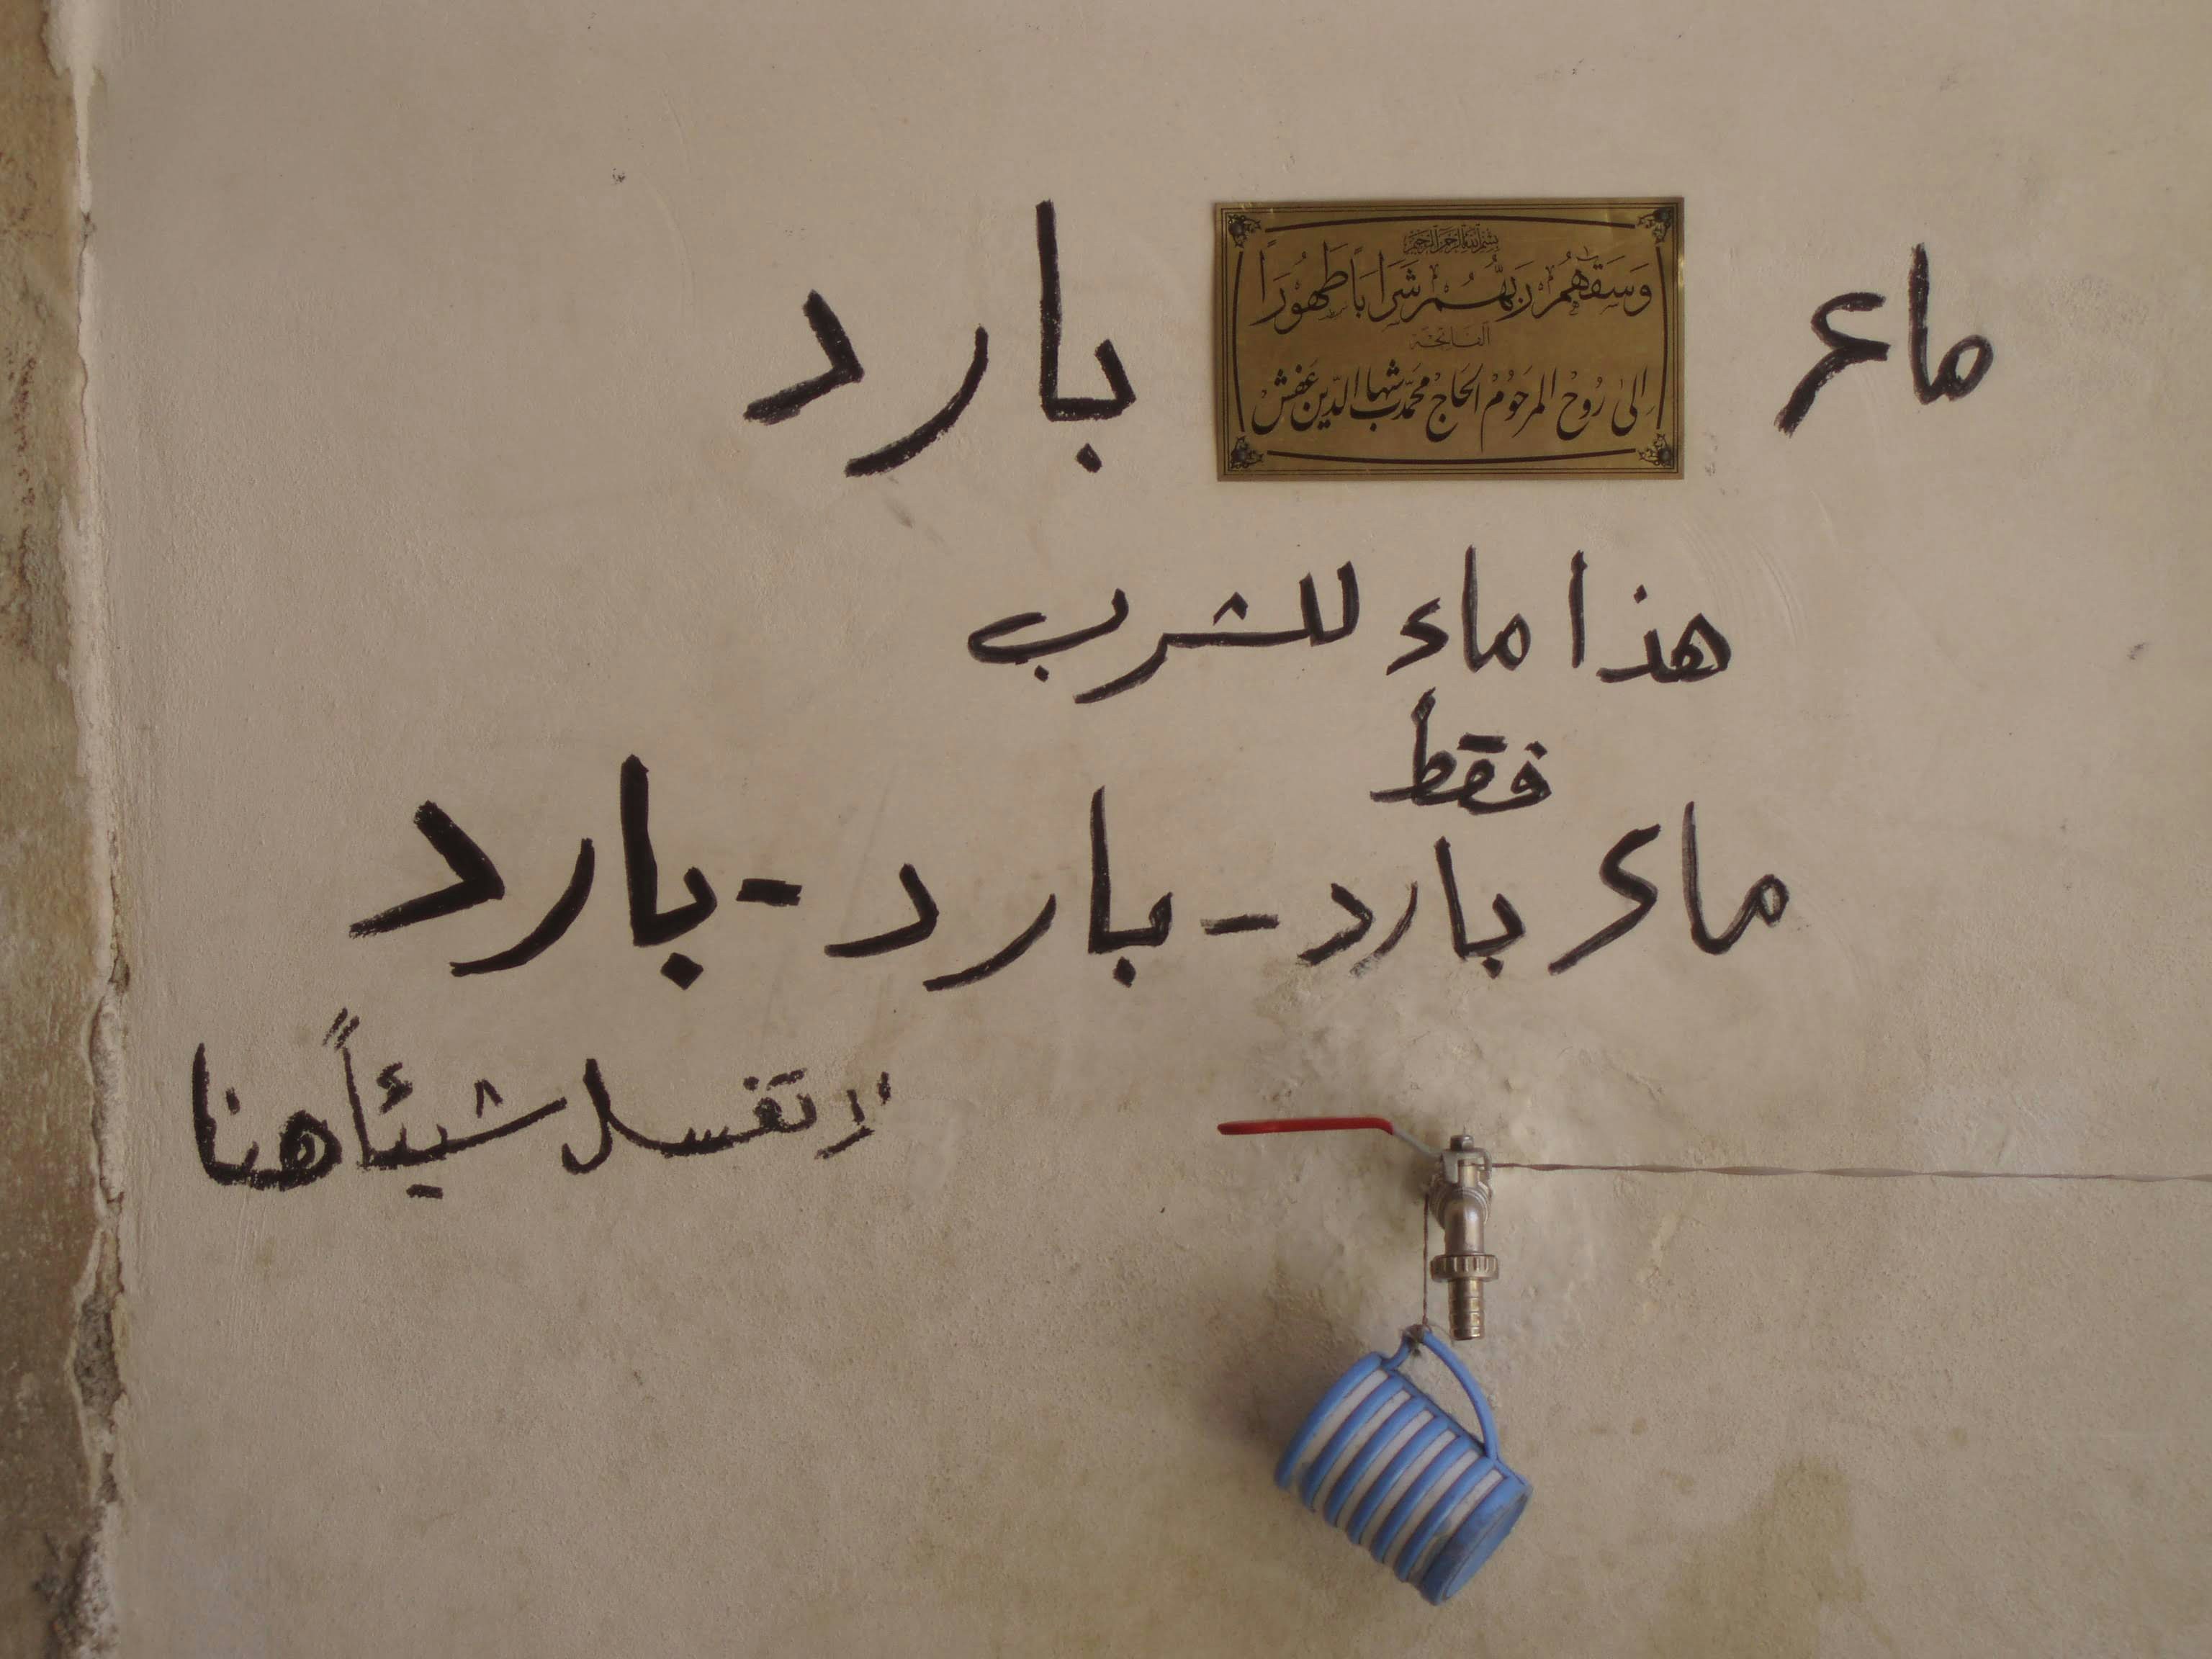 ماء بارد
بسم الله الرحمن الرحيم
وَسَقَىٰهُمْ رَبُّهُمْ شَرَابًا طَهُورًا
الفاتحة
إلى رُوح المرحُوم الحَاج محمّد شهاب الدّين عفش
هذا ماء للشرب
فقط
ماء بارد - بارد - بارد
لا تغسل شيئاً هنا